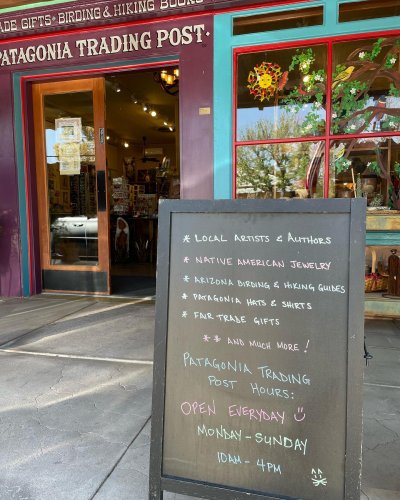 ADE GIFTS • BIRDING & HIKING BOOKS
PATAGONIA TRADING POST •
* LOCAL ARTISTS & AUTHORS
* NATIVE AMERICAN JEWELRY
* ARIZONA BIRDING & HIKING GUIDES
* PATAGONIA HATS & SHIRTS
* FAIR TRADE GIFTS
* * AND MUCH MORE!
PATAGONIA TRADING
POST HOURS:
OPEN EVERYDAY
MONDAY - SUNDAY
10AM - 4PM